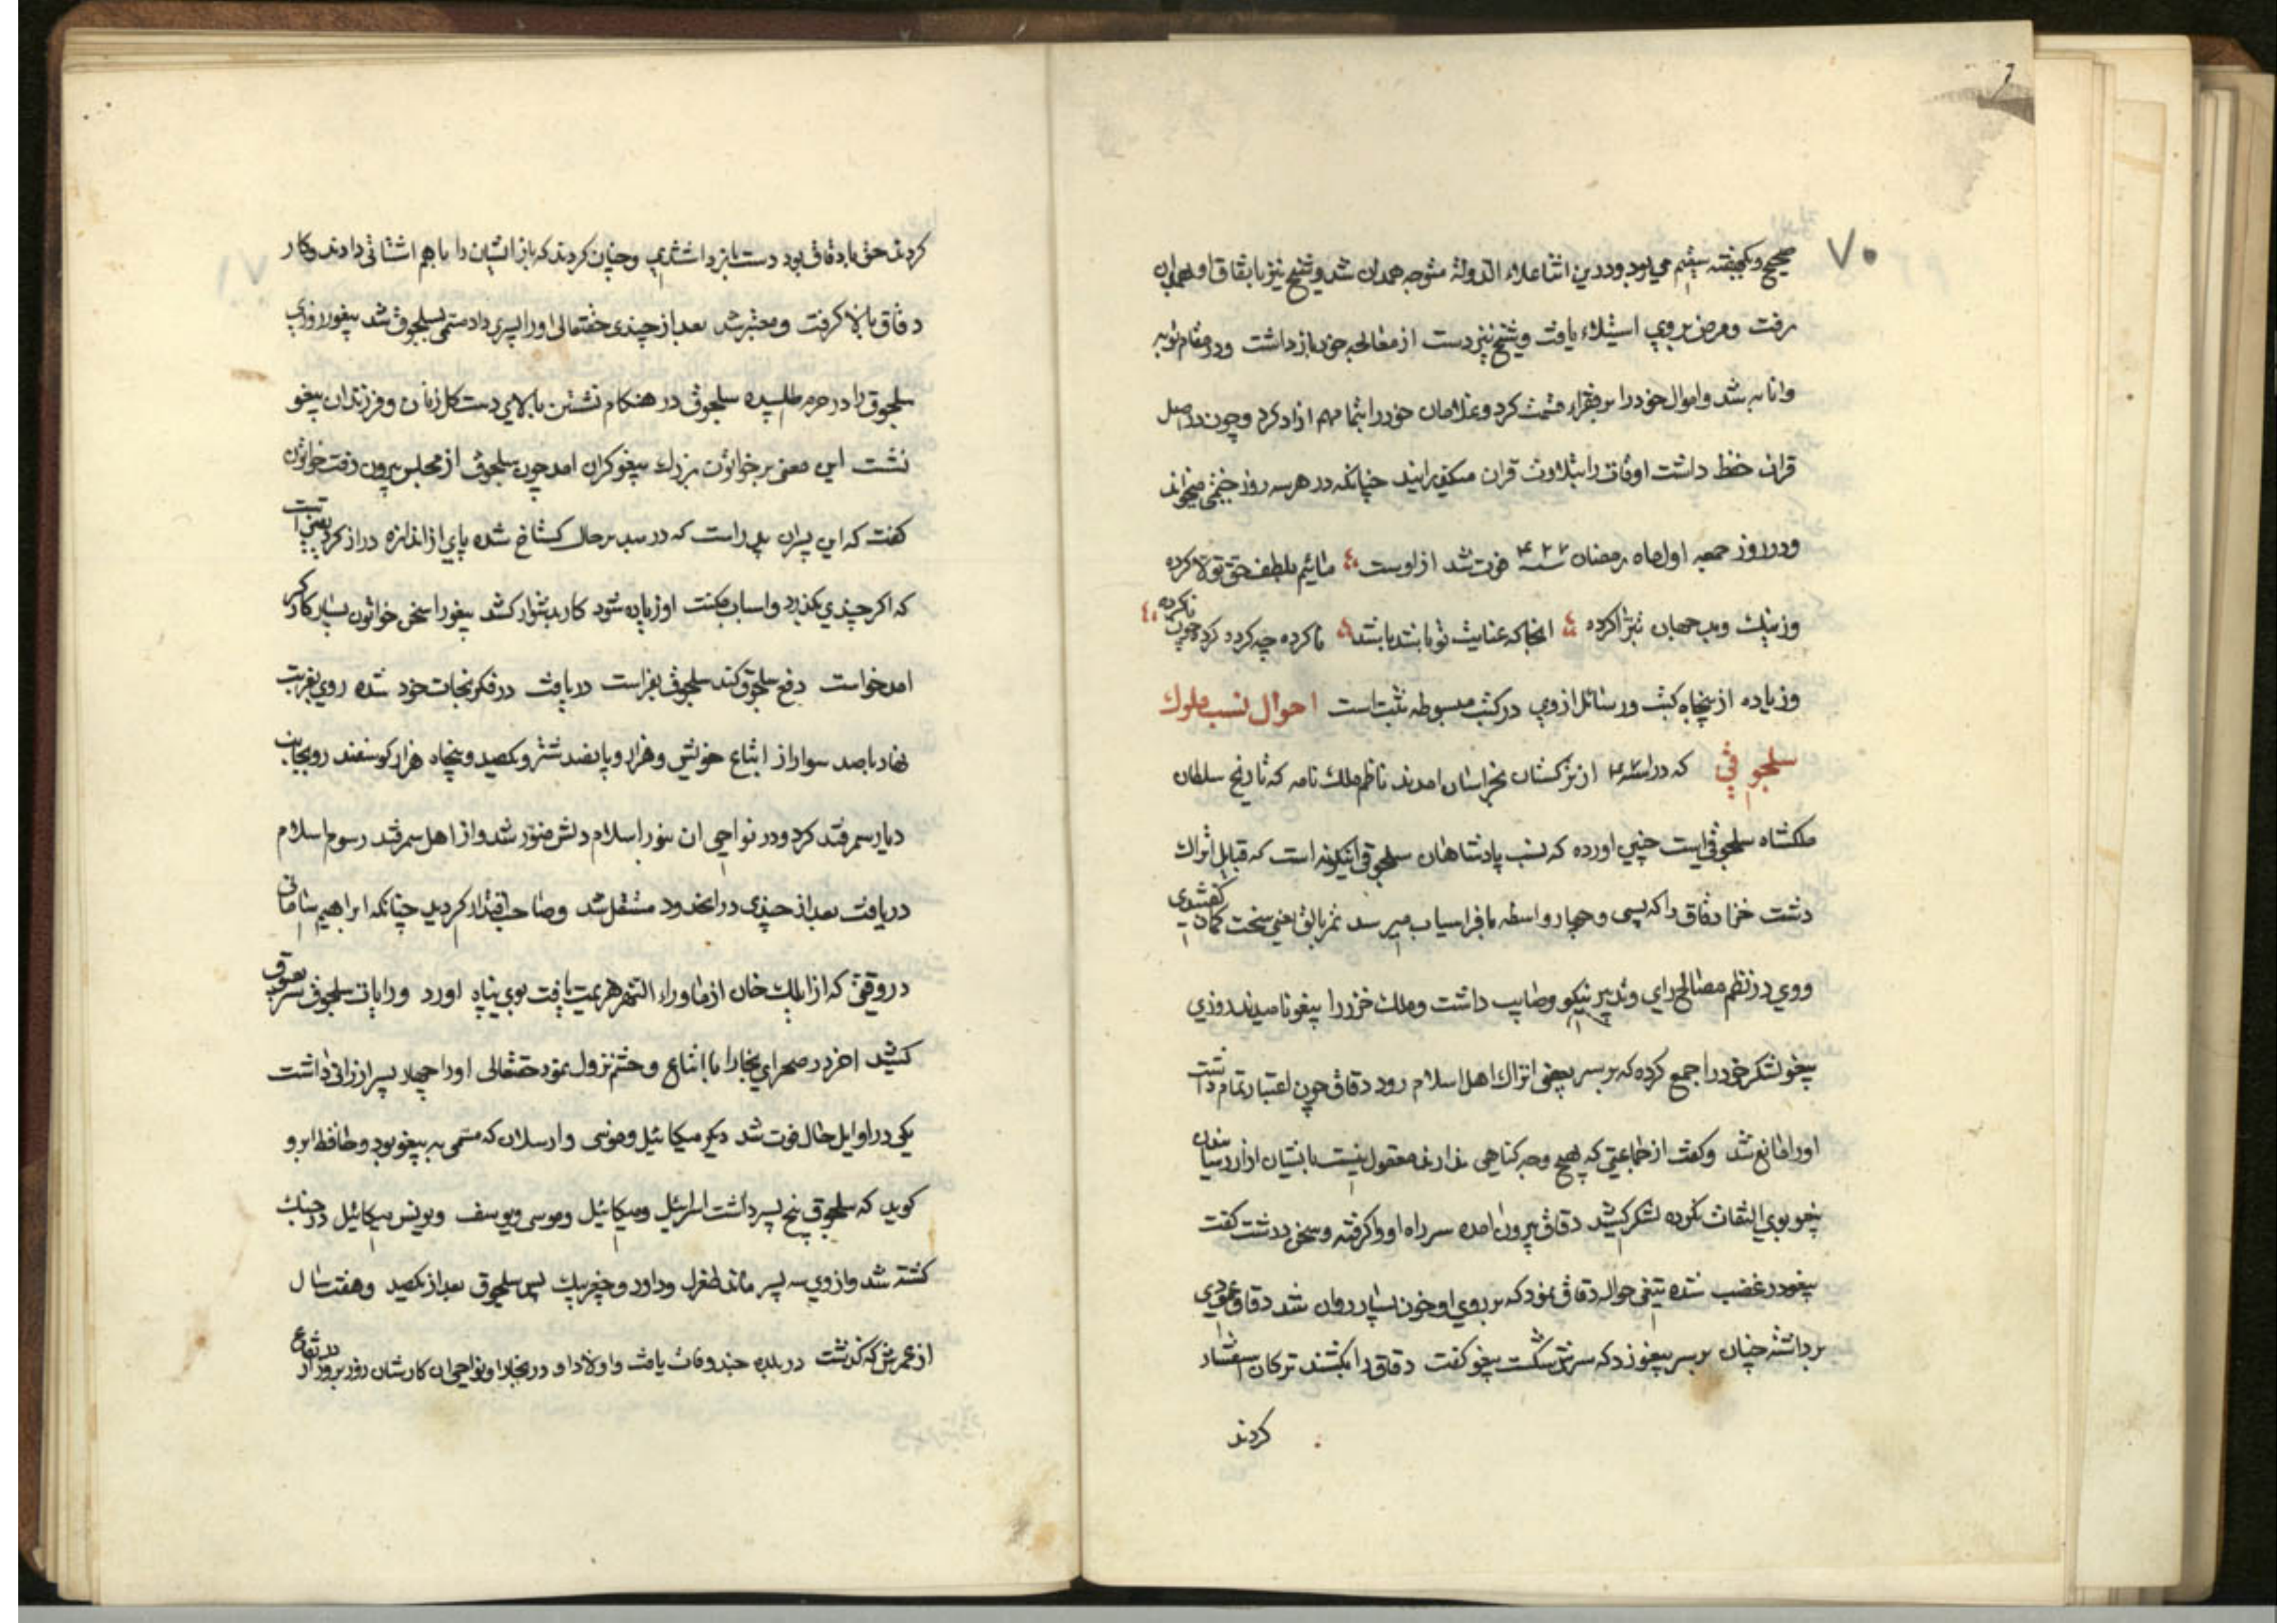 ۷۰
صحیح و یکهفته سقیم می بود و درین اثنا علاء الدوله متوجه همدان شد و شیخ نیز باتفاق او بهمدان
رفت و مرض بر وی استیلاء یافت و شیخ نیز دست از معالجه خود باز داشت و در مقام توبه
وانابه شد و اموال خود را بر فقراء قسمت کرد و غلامان خود را بتمامهم ازاد کرد و چون در اصل
قران حفظ داشت اوقات را بتلاوت قران میکذرانید چنانکه در هر سه روز ختمی میخواند
و در روز جمعه اول ماه رمضان سنه ۴۲۷ فوت شد از اوست مائیم بلطف حق تولا کرده
وز نیک و بد جهان تبرا کرده انجا که عنایت تو باشد باشد ناکرده چه کرده کرده چون ناکرده
وزیاده از پنجاه کتب و رسائل از وی در کتب مبسوطه ثبت است احوال نسب ملوک
سلجوقی که در سنه از ترکستان بخراسان امدند ناظم ملک نامه که تاریخ سلطان
ملکشاه سلجوقی است چنین اورده که نسب پادشاهان سلجوقی اینکونه است که قبایل اتراک
دشت خزر دقاق را که بسی و چهار واسطه بافراسیاب میرسد تمریالق یعنی سخت کمان کفتندی
ووی در نظم مصالح رای و تدبیر نیکو و صایب داشت و ملک خزر را پیغو نامیدند روزی
پیغو لشکر خود را جمع کرده که بر سر بعضی اتراک اهل اسلام رود دقاق چون اعتبار تمام داشت
اورا مانع شد و کفت از جماعتی که هیچ وجه کناهی ندارند معقول نیست بایشان ازار رسانیدن
پیغو بوی التفات نکرده لشکر کشید دقاق بیرون امده سر راه اورا کرفته و سخن درشت کفت
پیغو در غضب شده تیغی حواله دقاق نمود که بر روی او خون بسیار روان شد دقاق عمودی
برداشته چنان بر سر پیغو زد که سرش شکست پیغو کفت دقاق را بکشند ترکان استفسار
کردند
۷۱
کردند حق با دقاق بود دست باز داشتند و چنان کردند که باز ایشان را باهم اشنائی دادند و کار
دقاق بالا کرفت و معتبر شد بعد از چندی حقتعالی اورا پسری داد مسمی بسلجوق شد پیغو روزی
سلجوق را در حرم طلبیده سلجوق در هنکام نشستن بالای دست کل زنان و فرزندان پیغو
نشست این معنی بر خواتون بزرک پیغو کران امد چون سلجوق از مجلس بیرون رفت خواتون
کفت که این پسران پدر است که در هر حال کستاخ شده پای از اندازه دراز کرد یقینست
که اکر چندی بکذرد و اسباب مکنت او زیاده شود کار دشوار کشد پیغو را سخن خواتون بسیار کارکر
امد خواست دفع سلجوق کند سلجوق بفراست دریافت در فکر نجات خود شده روی بغربت
نهاد با صد سوار از اتباع خویش و هزار و پانصد شتر و یکصد و پنجاه هزار کوسفند رو بجانب
دیار سمرقند کرد و در نواحی ان بنور اسلام دلش منور شد و از اهل سمرقند رسوم اسلام
دریافت بعد از چندی در انحدود مستقل شد و صاحب اقتدار کردید چنانکه ابراهیم سامانی
در وقتی که از ایلک خان از ماوراء النهر هزیمت یافت بوی پناه اورد و رایات سلجوق بعیوق سر
کشید اخر در صحرای بخارا با اتباع و حشم نزول نمود حقتعالی اورا چهار پسر ارزانی داشت
یکی در اوایل حال فوت شد دیکر میکائیل و موسی و ارسلان که مسمی به پیغو بود و حافظ ابرو
کوید که سلجوق پنج پسر داشت اسرائیل و میکائیل و موسی و یوسف و یونس میکائیل در جنک
کشته شد و از وی سه پسر ماند طغرل و داود و چغربیک پس سلجوق بعد از یکصد و هفت سال
از عمرش که کذشت در بلده جند وفات یافت و اولاد او در بخارا و نواحی ان کارشان روز بروز در ارتفاع